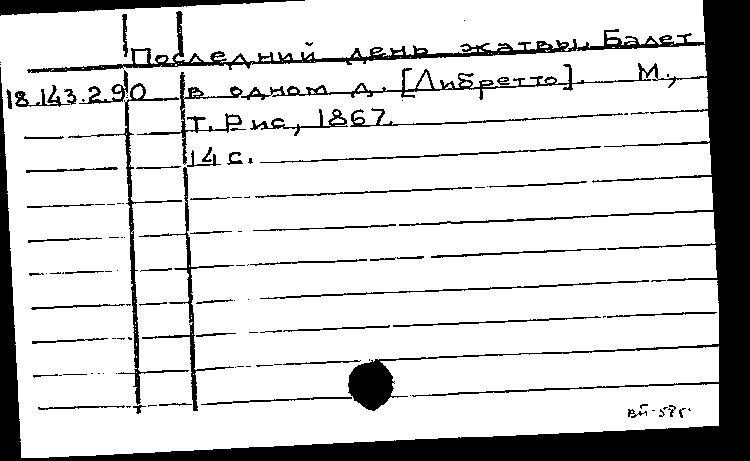 Последний день жатвы. Балет
18.143.2.90 в одном д. [Либретто]. М.,
Т. Рис, 1867.
14 с.